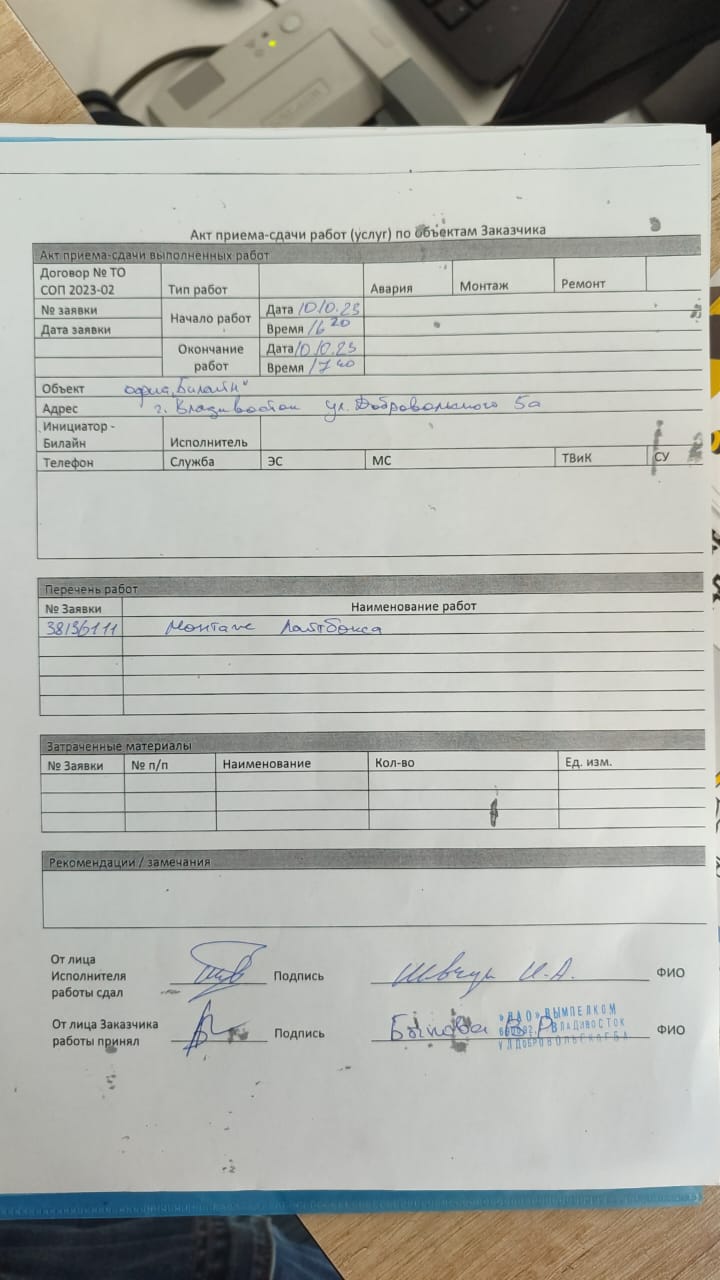 Акт приема-сдачи работ (услуг) по объектам Заказчика
Акт приема-сдачи выполненных работ
Договор № ТО СОП 2023-02 Тип работ Авария Монтаж Ремонт
№ заявки Начало работ Дата 10/0.23
Дата заявки Время 16 20
Окончание работ Дата 10/0.23
Время 17 40
Объект офис "Билайн"
Адрес г. Владивосток ул. Добровольского 5а
Инициатор - Билайн Исполнитель
Телефон Служба ЭС МС ТВиК СУ
Перечень работ
№ Заявки Наименование работ
38136111 Монтаж Лайтбокса
Затраченные материалы
№ Заявки № п/п Наименование Кол-во Ед. изм.
Рекомендации / замечания
От лица
Исполнителя
работы сдал Подпись И.А. ФИО
От лица Заказчика
работы принял Подпись В.Р. ФИО
"ПАО" ВЫМПЕЛКОМ
ВЛАДИВОСТОК